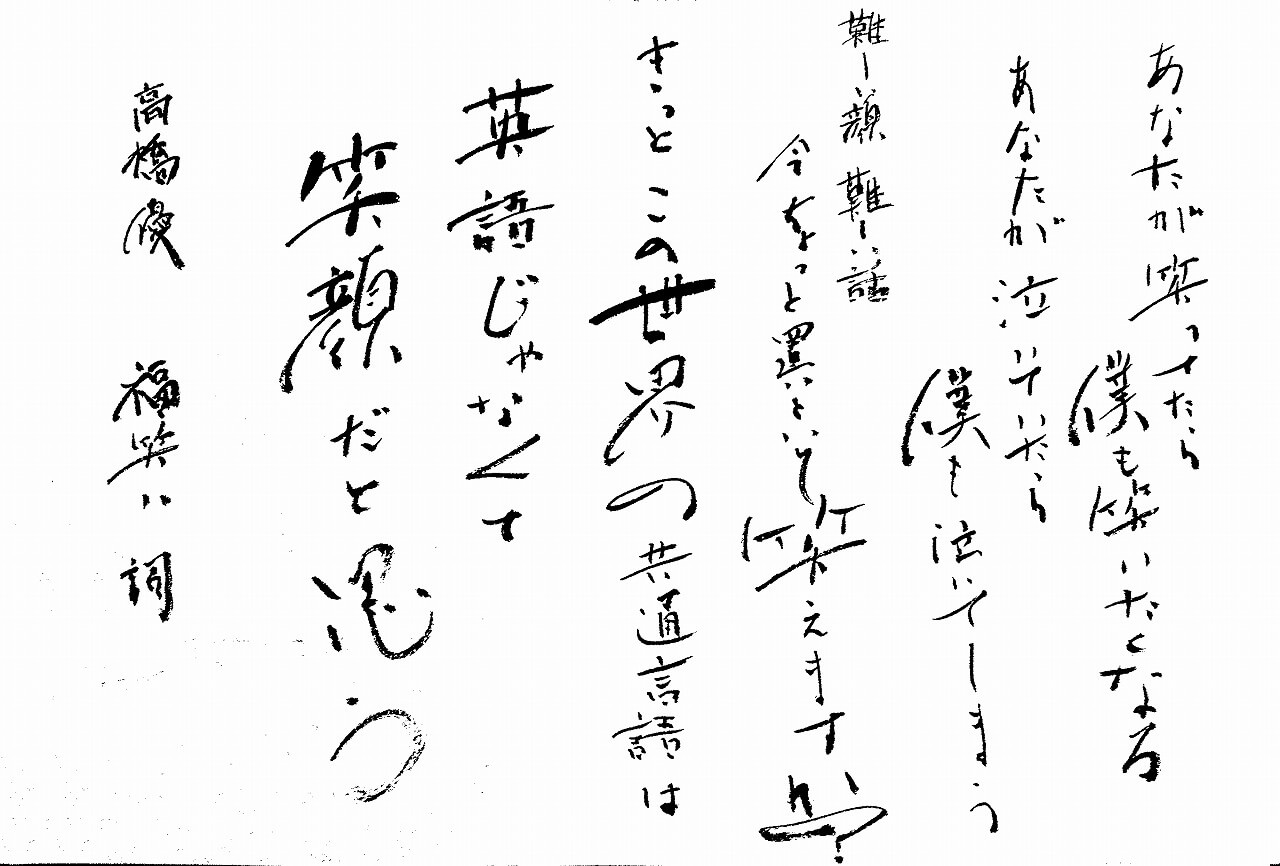 あなたが笑ってたら
僕も笑いたくなる
あなたが泣いていたら
僕も泣いてしまう
難しい顔 難しい話
今ちょっと置いといて笑えますか?
きっとこの世界の共通言語は
英語じゃなくて
笑顔だと思う
高橋優 福笑い 詞